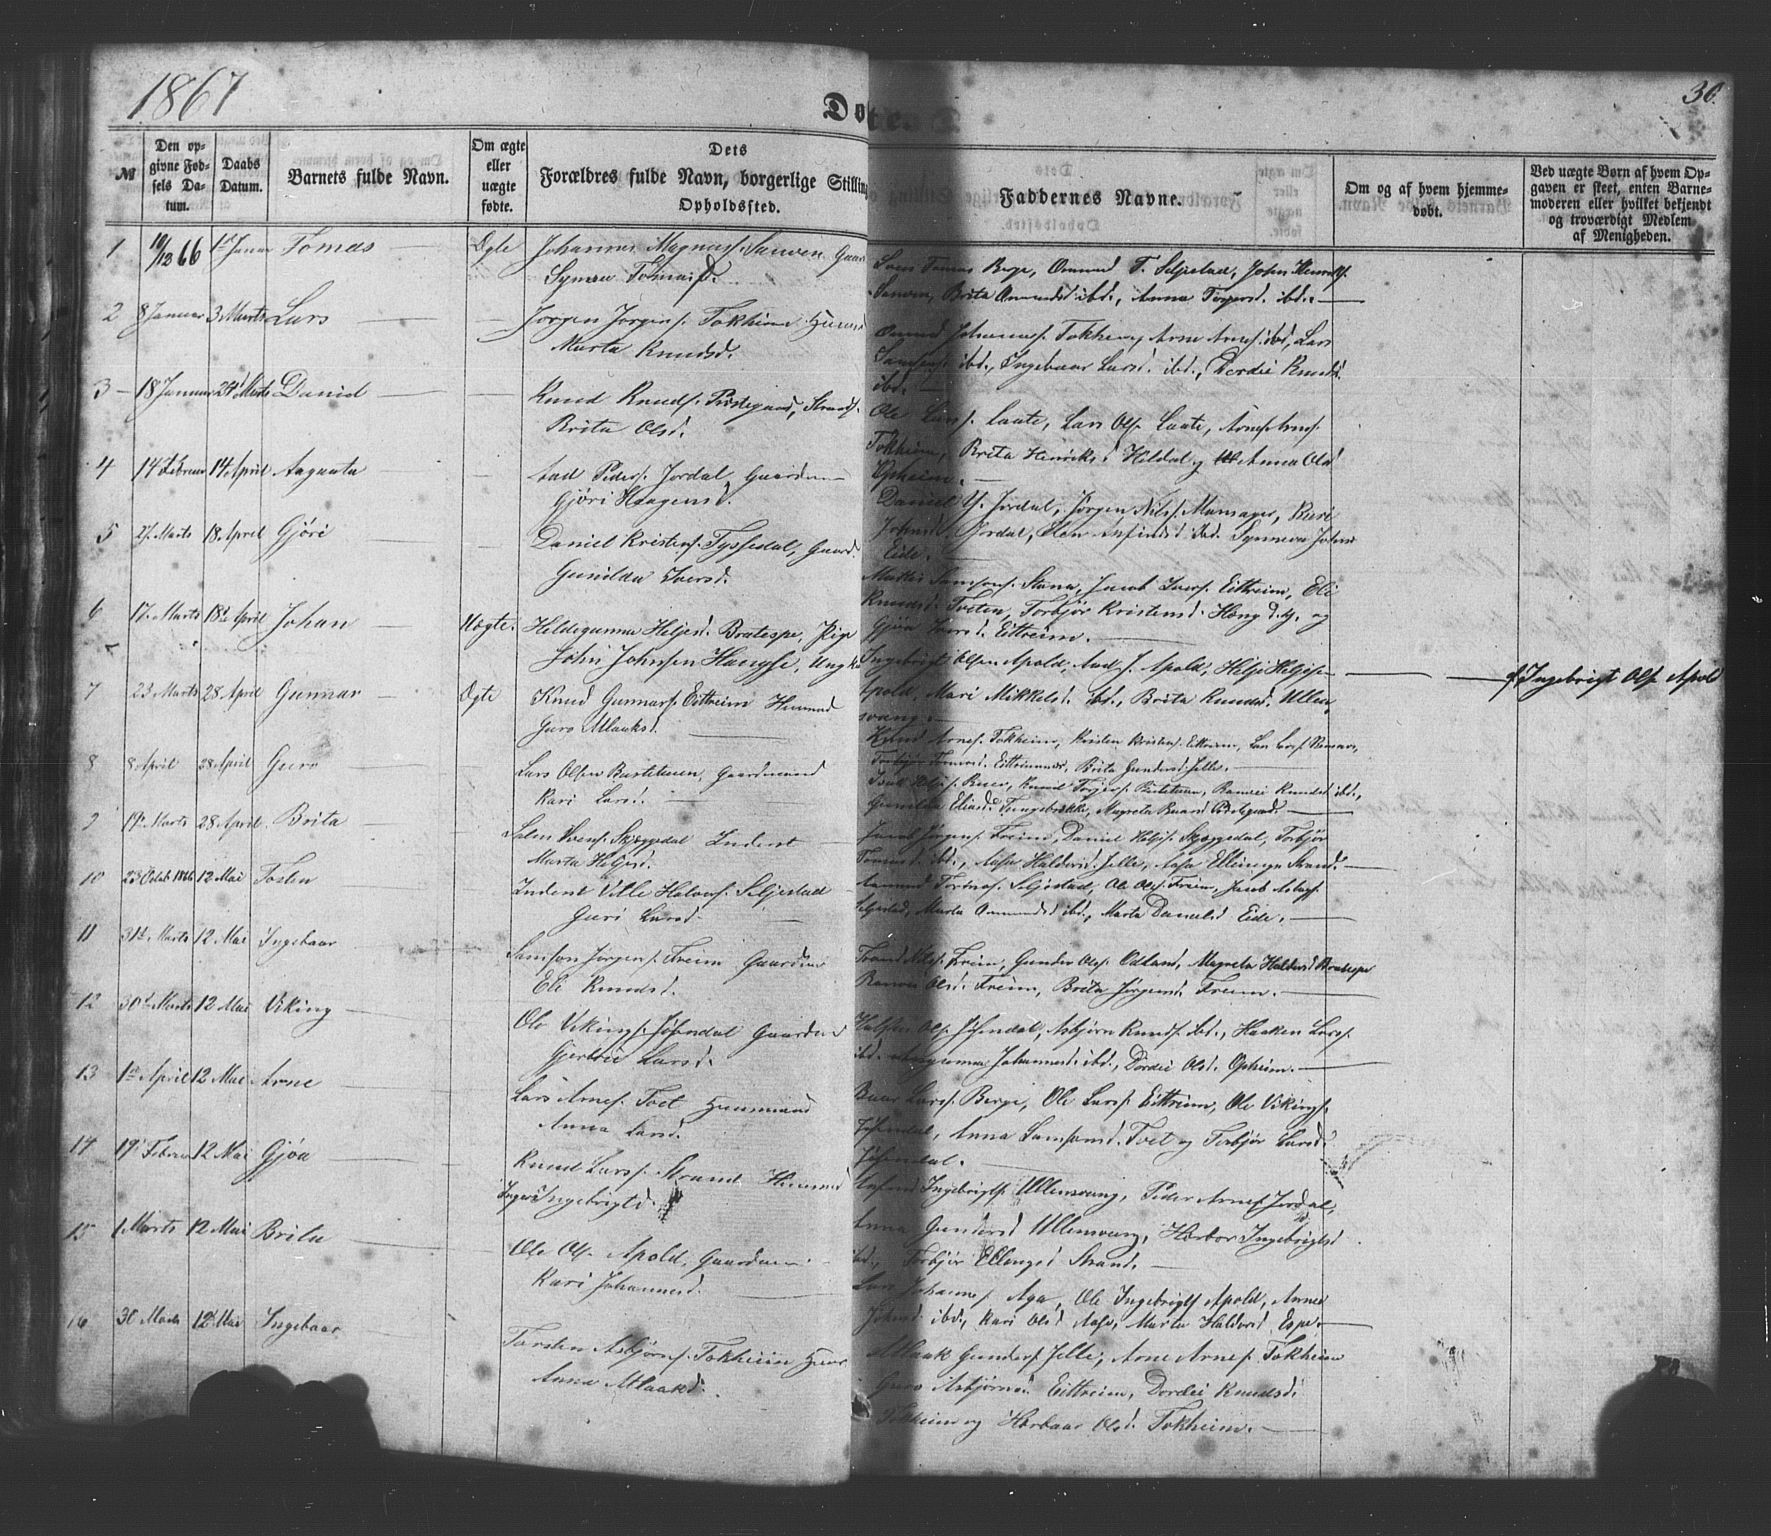 1867
Døbte.
30.
№
Den opgivne Fødsels Datum.
Daabs Datum.
Barnets fulde Navn.
Om ægte eller uægte fødte.
Dets Forældres fulde Navn, borgerlige Stilling Opholdssted.
Faddernes Navne.
Om og af hvem hjemmedøbt.
Ved uægte Børn af hvem Opgaven er skeet, enten Barnemoderen eller hvilket bekjendt og troværdigt Medlem af Menigheden.
1 10/12 66 1st Januar Tomas Ægte Johannes Magnuss.
Syneva Tomasd.
Berge, Omund T. Seljestad, John
Brita Omundsd ibd., Anna Torgersd. ibd.
2 8 Januar 3 Marts Lars Jørgen Jørgens. Tokheim
Marta Knudsd.
Omund Johanness. Tokheim, Arne Arnes. ibd, Lars
Samsons. ibd., Ingebaar Larsd. ibd., Dordei Knudsd.
ibd.
3 18 Januar 24 Marts Daniel Knud Knuds. Prestegaard, Strands.
Brita Olsd.
Ole Larss. Laate, Lars Ols. Laate, Arne Arnes.
Tokheim, Brita Henriksd Hildal og Anna Olsd
Opheim.
4 14 Februar 14 April Aagaata Aad Peders. Jordal Gaardm
Gjøri Haagensd.
Daniel Jordal, Jørgen Nils. Mannsager, Guri
Jordal, Synneva Johns
Eide.
5 27 Marts 18 April Gjøri Daniel Kristens. Tyssedal, Gaard.
Gunilda Iversd.
Samsons. Stana, Jacob Ivers. Eittreim, Eli
Knudsd. Tveten, Torbjør Kristensd. og
Gjøa Iversd. Eittreim.
6 17 Marts 18 April Johan Uægte. Hildegunna Heljesd. Bratespe, Pige
John Johnsen Ung
Ingebrigt Olsen Apold, Aad J. Apold, Helje Heljesen
Apold, Mari Mikkelsd. ibd., Brita Knudsd. Ullensvang.
f. Ingebrigt Ols. Apold
7 23 Marts 28 April Gunnar Ægte Knud Gunnars. Eittreim Huusmd
Guro Mlaaksd.
Knud Arnes. Tokheim, Kristen Kristens. Eittreim,
Torbjør Brita Gundersd. Jelle.
8 8 April 28 April Guro Lars Olsen Bustetuun, Gaardmand
Kari Larsd.
Isak Heljes. Buer, Knud Torjers. Bustetuun, Ranvei Knudsd. ibd.,
Gunilda Eliasd. Magreta
9 19 Marts 28 April Brita Iverss. Skjeggedal Inderst
Marta Heljesd.
Jacob Jørgens. Freim, Daniel Heljes. Skjeggedal, Torbjør
Tomasd. ibd., Aasa Haldorsd. Jelle, Aasa Strand.
10 23 Octob 1866 12 Mai Tosten Inderst Halvors. Seljestad
Guri Larsd.
Aamund Seljestad, Ole Ols. Freim, Jacob
Seljestad, Marta Omundsd ibd., Marta Danielsd Eide.
11 31 Marts 12 Mai Ingebaar Samson Jørgens. Freim Gaardm
Eli Knudsd.
Freim, Gunder Ols. Odland, Magreta Haldorsd Bratespe
Ranvei Olsd. Freim, Brita Jørgensd. Freim.
12 30 Marts 12 Mai Viking Ole Vikings. Jøsendal Gaardm
Gjertrei Larsd.
Halsten Ols. Jøsendal, Asbjørn Knuds. ibd., Haaken Larss.
ibd. Johannesd. ibd., Dordei Olsd. Opheim.
13 1 April 12 Mai Arne Lars Arnes. Tvet Huusmand
Anna Larsd.
Baar Larss. Berge, Ole Larss. Eittreim, Ole Vikings.
Jøsendal, Anna Samsonsd. Tvet og Torbjør Larsd.
Jøsendal.
14 19 Februar 12 Mai Gjøa Knud Larss. Strand Huusmd
Inger Ingebrigtsd.
Ingebrigts. Ullensvang, Peder Arnes. Jordal,
Anna Gundersd Ullensvang, Herbor Ingebrigtsd
ibd., Torbjør Ellingsd Strand.
15 1 Marts 12 Mai Brita Ole Ols. Apold, Gaardm
Kari Johannesd.
Lars Johannes. Aga, Ole Ingebrigts. Apold,
ibd., Kari Olsd Aase, Marta Haldorsd Espe.
16 30 Marts 12 Mai Ingebaar Torsten Asbjørns. Tokheim Huus
Anna Mlaaksd.
Mlaak Gunders. Jelle, Arne Arnes. Tokheim
Guro Asbjørnsd. Eittreim, Dordei Knudsd.
Tokheim og Herbaar Olsd. Tokheim.